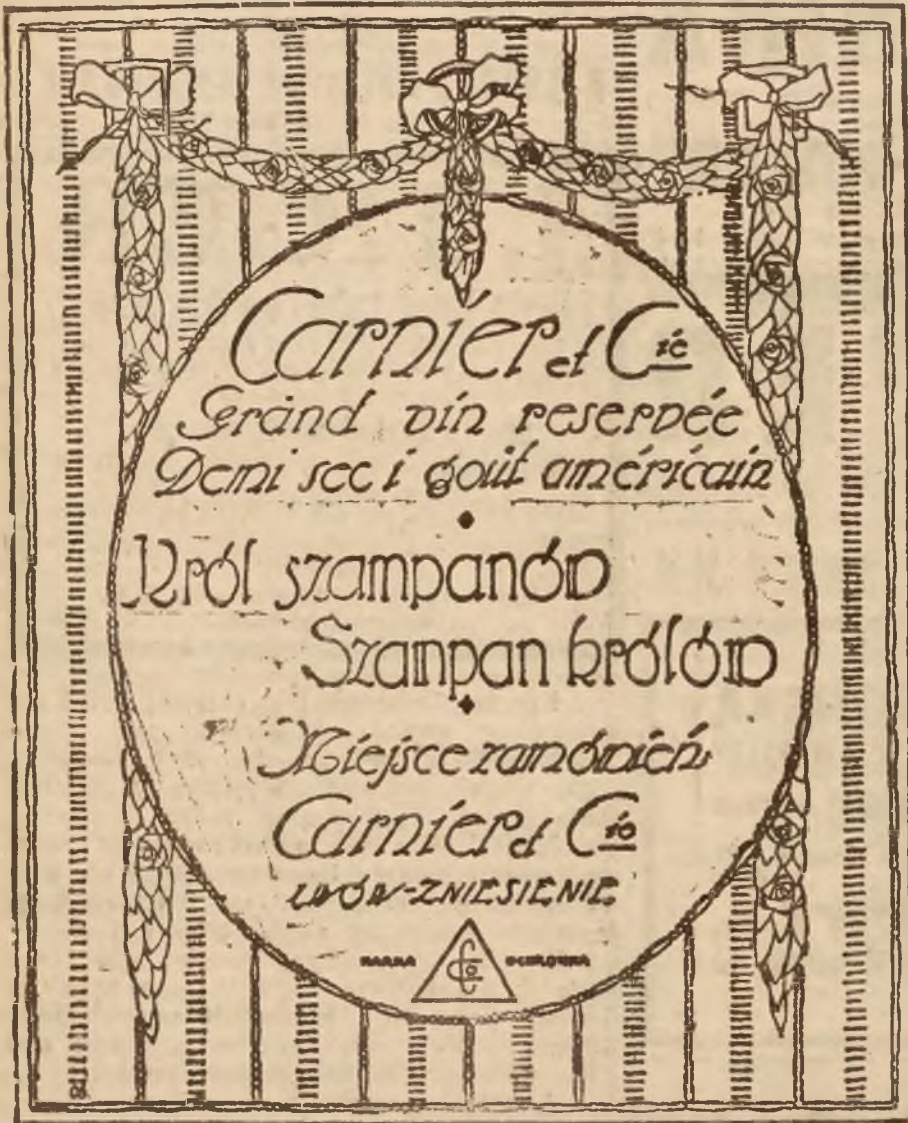 Carnier et Cie
Grand vin reservée
Demi sec i goût américain
Król szampanów
Szanpan królów
Miejsce zamówień
Carnier et Cie
LWÓW-ZNIESIENIE
MARKA OCHRONNA